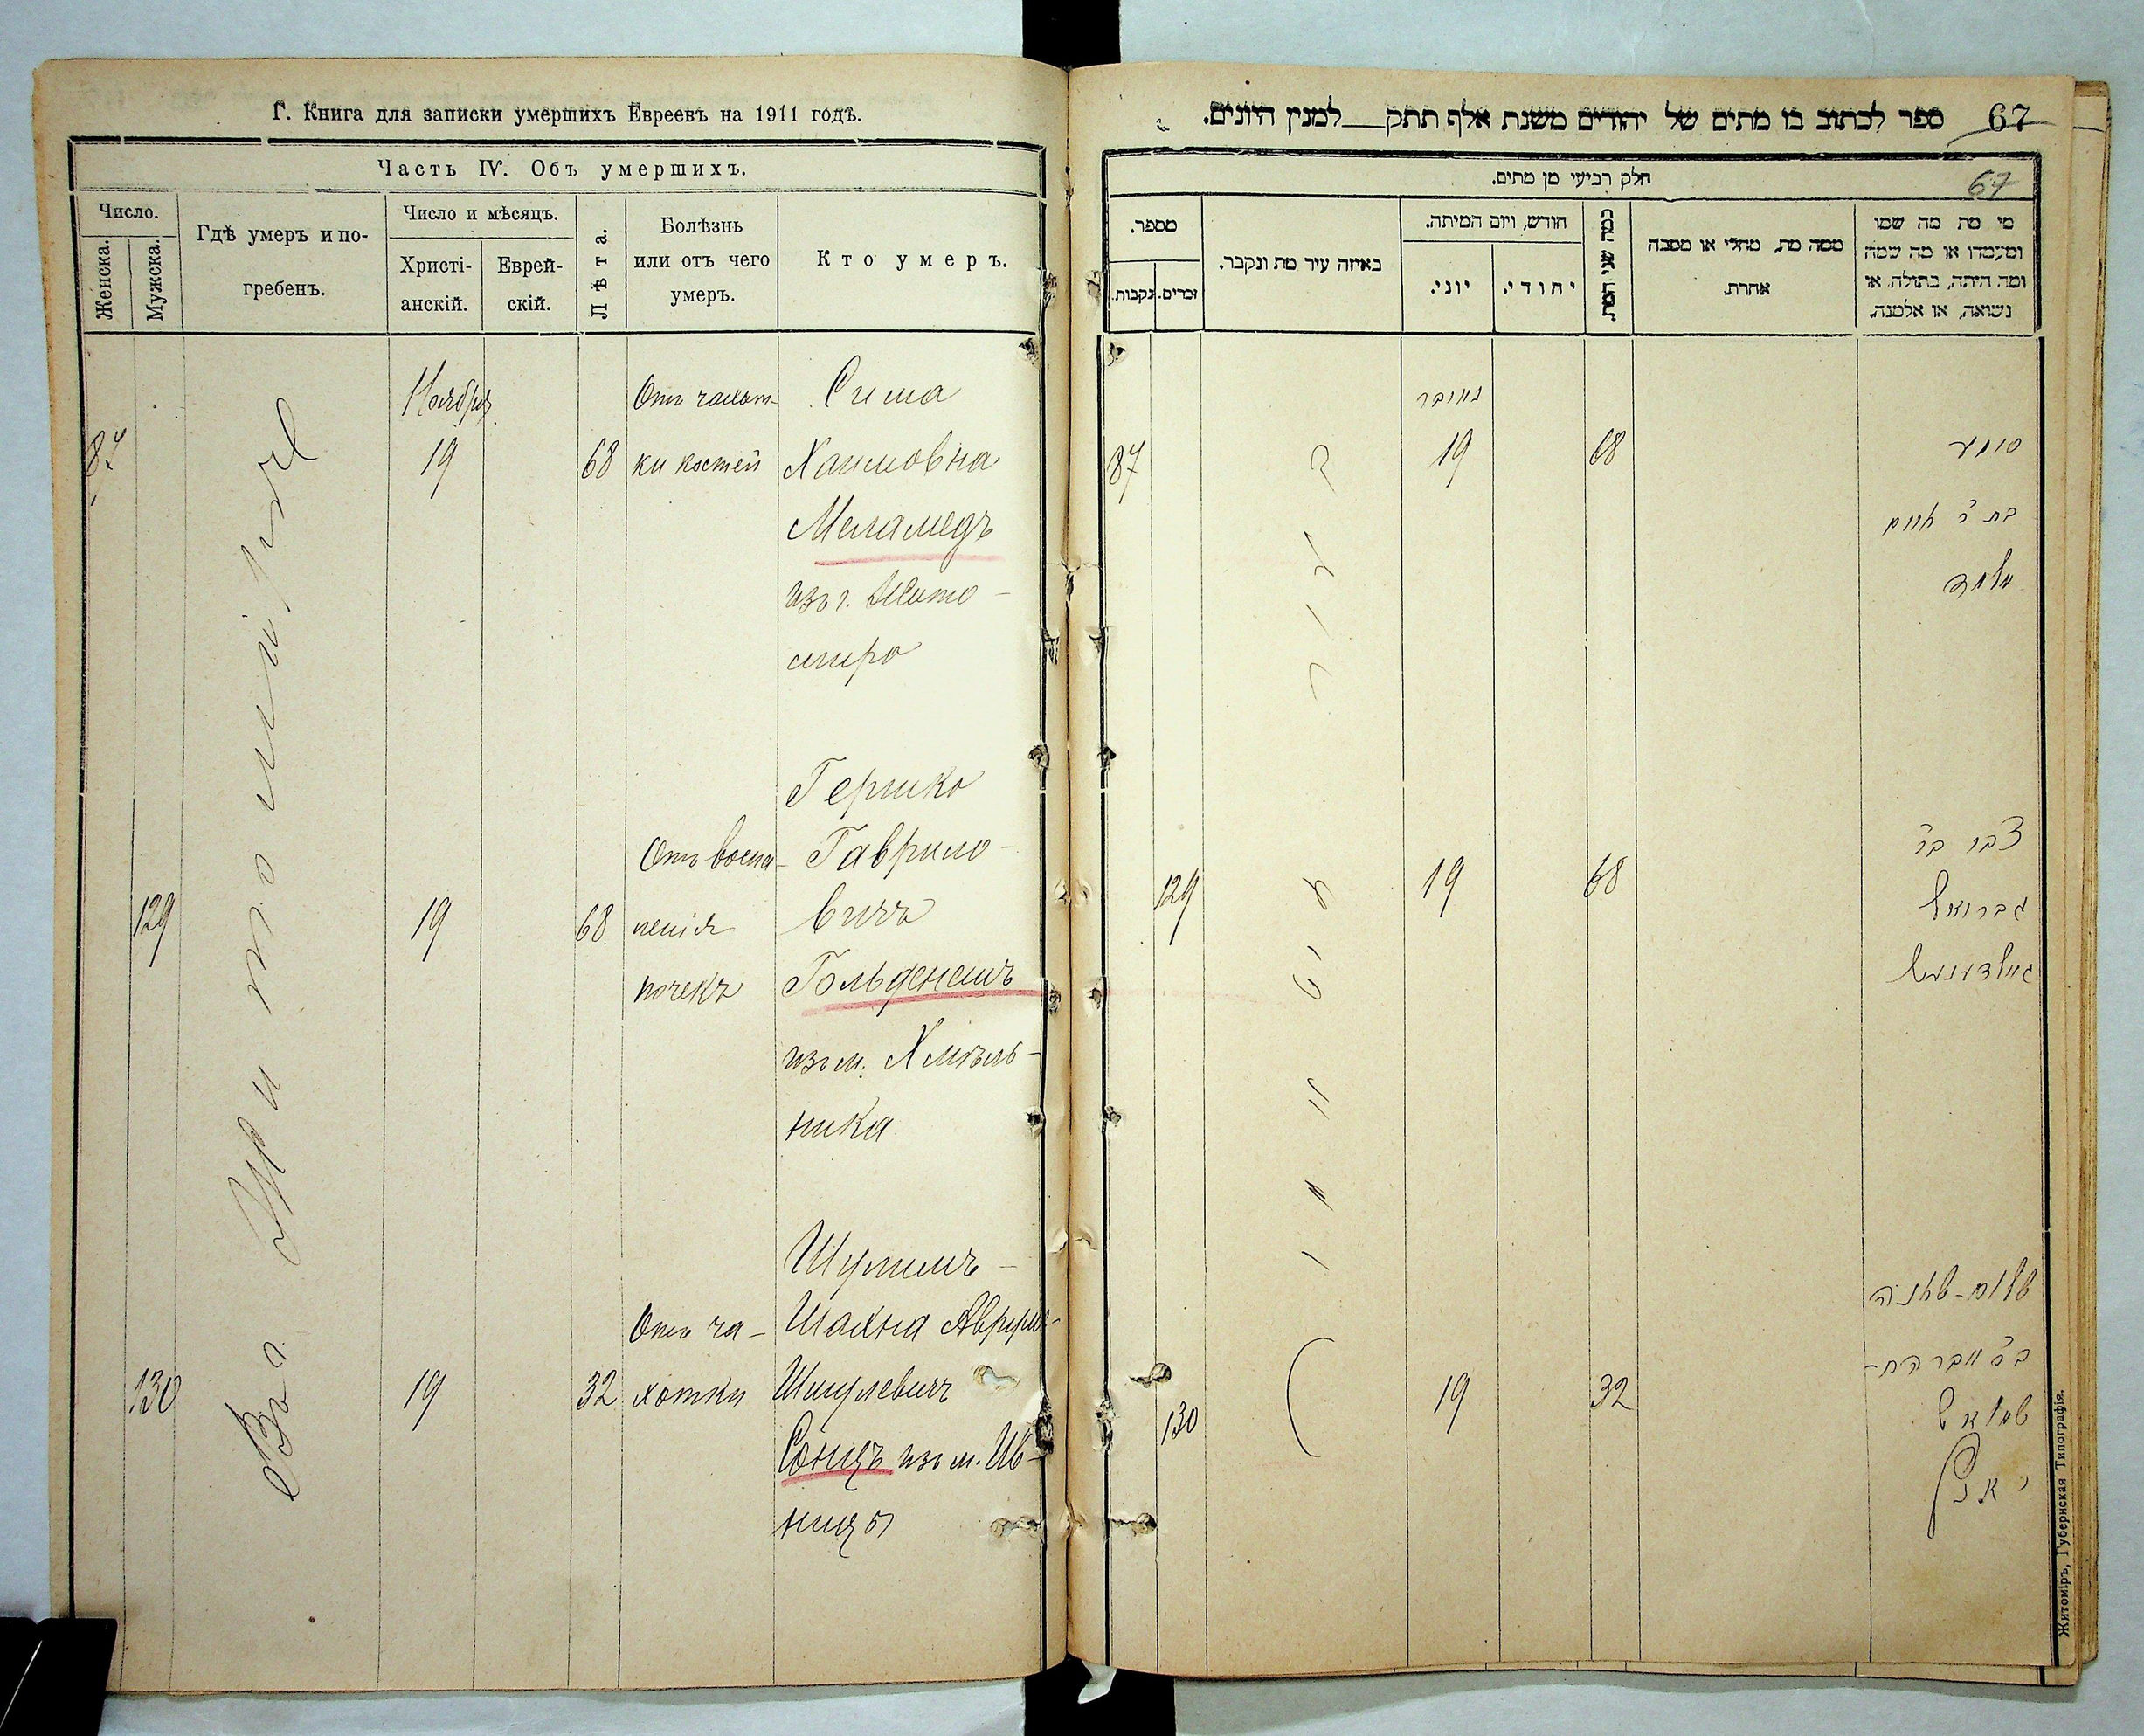 Г. Книга для записки умершихъ Евреевъ на 1911 годъ.
Часть IV. Объ умершихъ.
Число.
Женска.
Мужска.
Гдѣ умеръ и по-
гребенъ.
Число и мѣсяцъ.
Христі-
анскій.
Еврей-
скій.
Лѣта.
Болѣзнь
или отъ чего
умеръ.
Кто умеръ.
Въ г. Житомірѣ
Ноября
87
19
68
Отъ чахот-
ки костей
Сима
Хаимовна
Меламедъ
изъ г. Жито-
мира
129
19
68
Отъ воспа-
ленія
почекъ
Гершко
Гаврило-
вичъ
Гольденешъ
изъ м. Хмѣль-
ника
130
19
32
Отъ ча-
хотки
Шулимъ-
Шахна Аврум-
Шмулевичъ
Сонцъ изъ м. Ив-
ницы
ספר לכתוב בו מתים של יהודים משנת אלף תתק למנין היונים.
67
חלק רביעי מן מתים.
67
מספר.
נקבות.
זכרים.
באיזה עיר מת ונקבר.
חודש, ויום המיתה.
יוני.
יהודי.
כמה שני המת
ממה מת, מחלי או מסבה
אחרת.
מי מת מה שמו
ומעמדו או מה שמה
ומה היתה, בתולה או
נשואה, או אלמנה.
87
19
68
בת ר חיים
129
19
68
צבי בר
גבריאל
130
19
32
שלום-שכנה
בר אברהם-
שמואל
Житомiръ, Губернская Типографія.